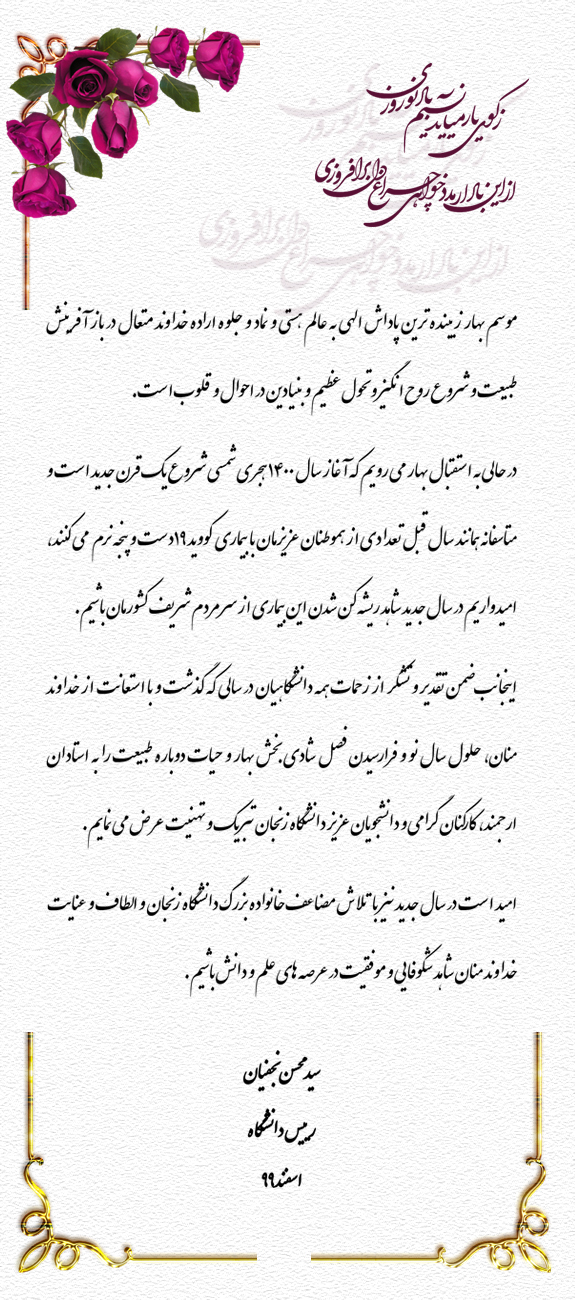 ز کوی یار می‌آید نسیم باد نوروزی
از این باد ار مدد خواهی چراغ دل برافروزی
موسم بهار زیبنده ترین پاداش الهی به عالم هستی و نماد و جلوه اراده خداوند متعال در باز آفرینش
طبیعت و شروع روح انگیز و تحول عظیم و بنیادین در احوال و قلوب است.
در حالی به استقبال بهار می رویم که آغاز سال ۱۴۰۰ هجری شمسی شروع یک قرن جدید است و
متاسفانه همانند سال قبل تعدادی از هموطنان عزیزمان با بیماری کووید ۱۹ دست و پنجه نرم می کنند،
امیدواریم در سال جدید شاهد ریشه کن شدن این بیماری از سر مردم شریف کشورمان باشیم .
اینجانب ضمن تقدیر و تشکر از زحمات همه دانشگاهیان در سالی که گذشت و با استعانت از خداوند
منان، حلول سال نو و فرارسیدن فصل شادی بخش بهار و حیات دوباره طبیعت را به استادان
ارجمند، کارکنان گرامی و دانشجویان عزیز دانشگاه زنجان تبریک و تهنیت عرض می نمایم .
امید است در سال جدید نیز با تلاش مضاعف خانواده بزرگ دانشگاه زنجان و الطاف و عنایت
خداوند منان شاهد شکوفایی و موفقیت در عرصه های علم و دانش باشیم .
سید محسن نجفیان
رییس دانشگاه
اسفند ۹۹